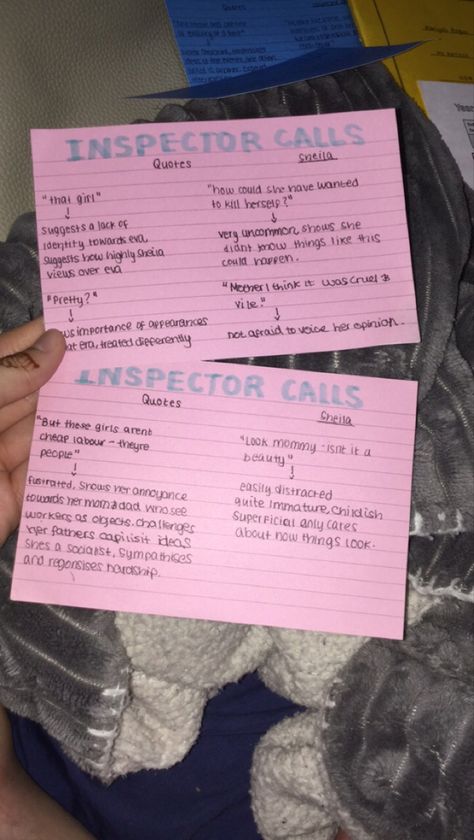 Quotes
INSPECTOR CALLS
Quotes
Sheila
"that girl"
suggests a lack of
identity towards eva,
suggests how highly Sheila
views over eva
"Pretty?"
importance of appearances
era, treated differently
"how could she have wanted
to kill herself?"
very uncommon, shows she
didnt know things like this
could happen.
"Mother I think it was cruel &
vile."
not afraid to voice her opinion.
INSPECTOR CALLS
Quotes
Sheila
"But these girls arent
cheap labour - theyre
people"
fustrated, shows her annoyance
towards her mom & dad who see
workers as objects. challenges
her fathers capilisit ideas
shes a socialist, sympathises
and regonsises hardship.
"Look mommy - isnt it a
beauty"
easily distracted
quite immature, childish
superficial only cares
about how things look.